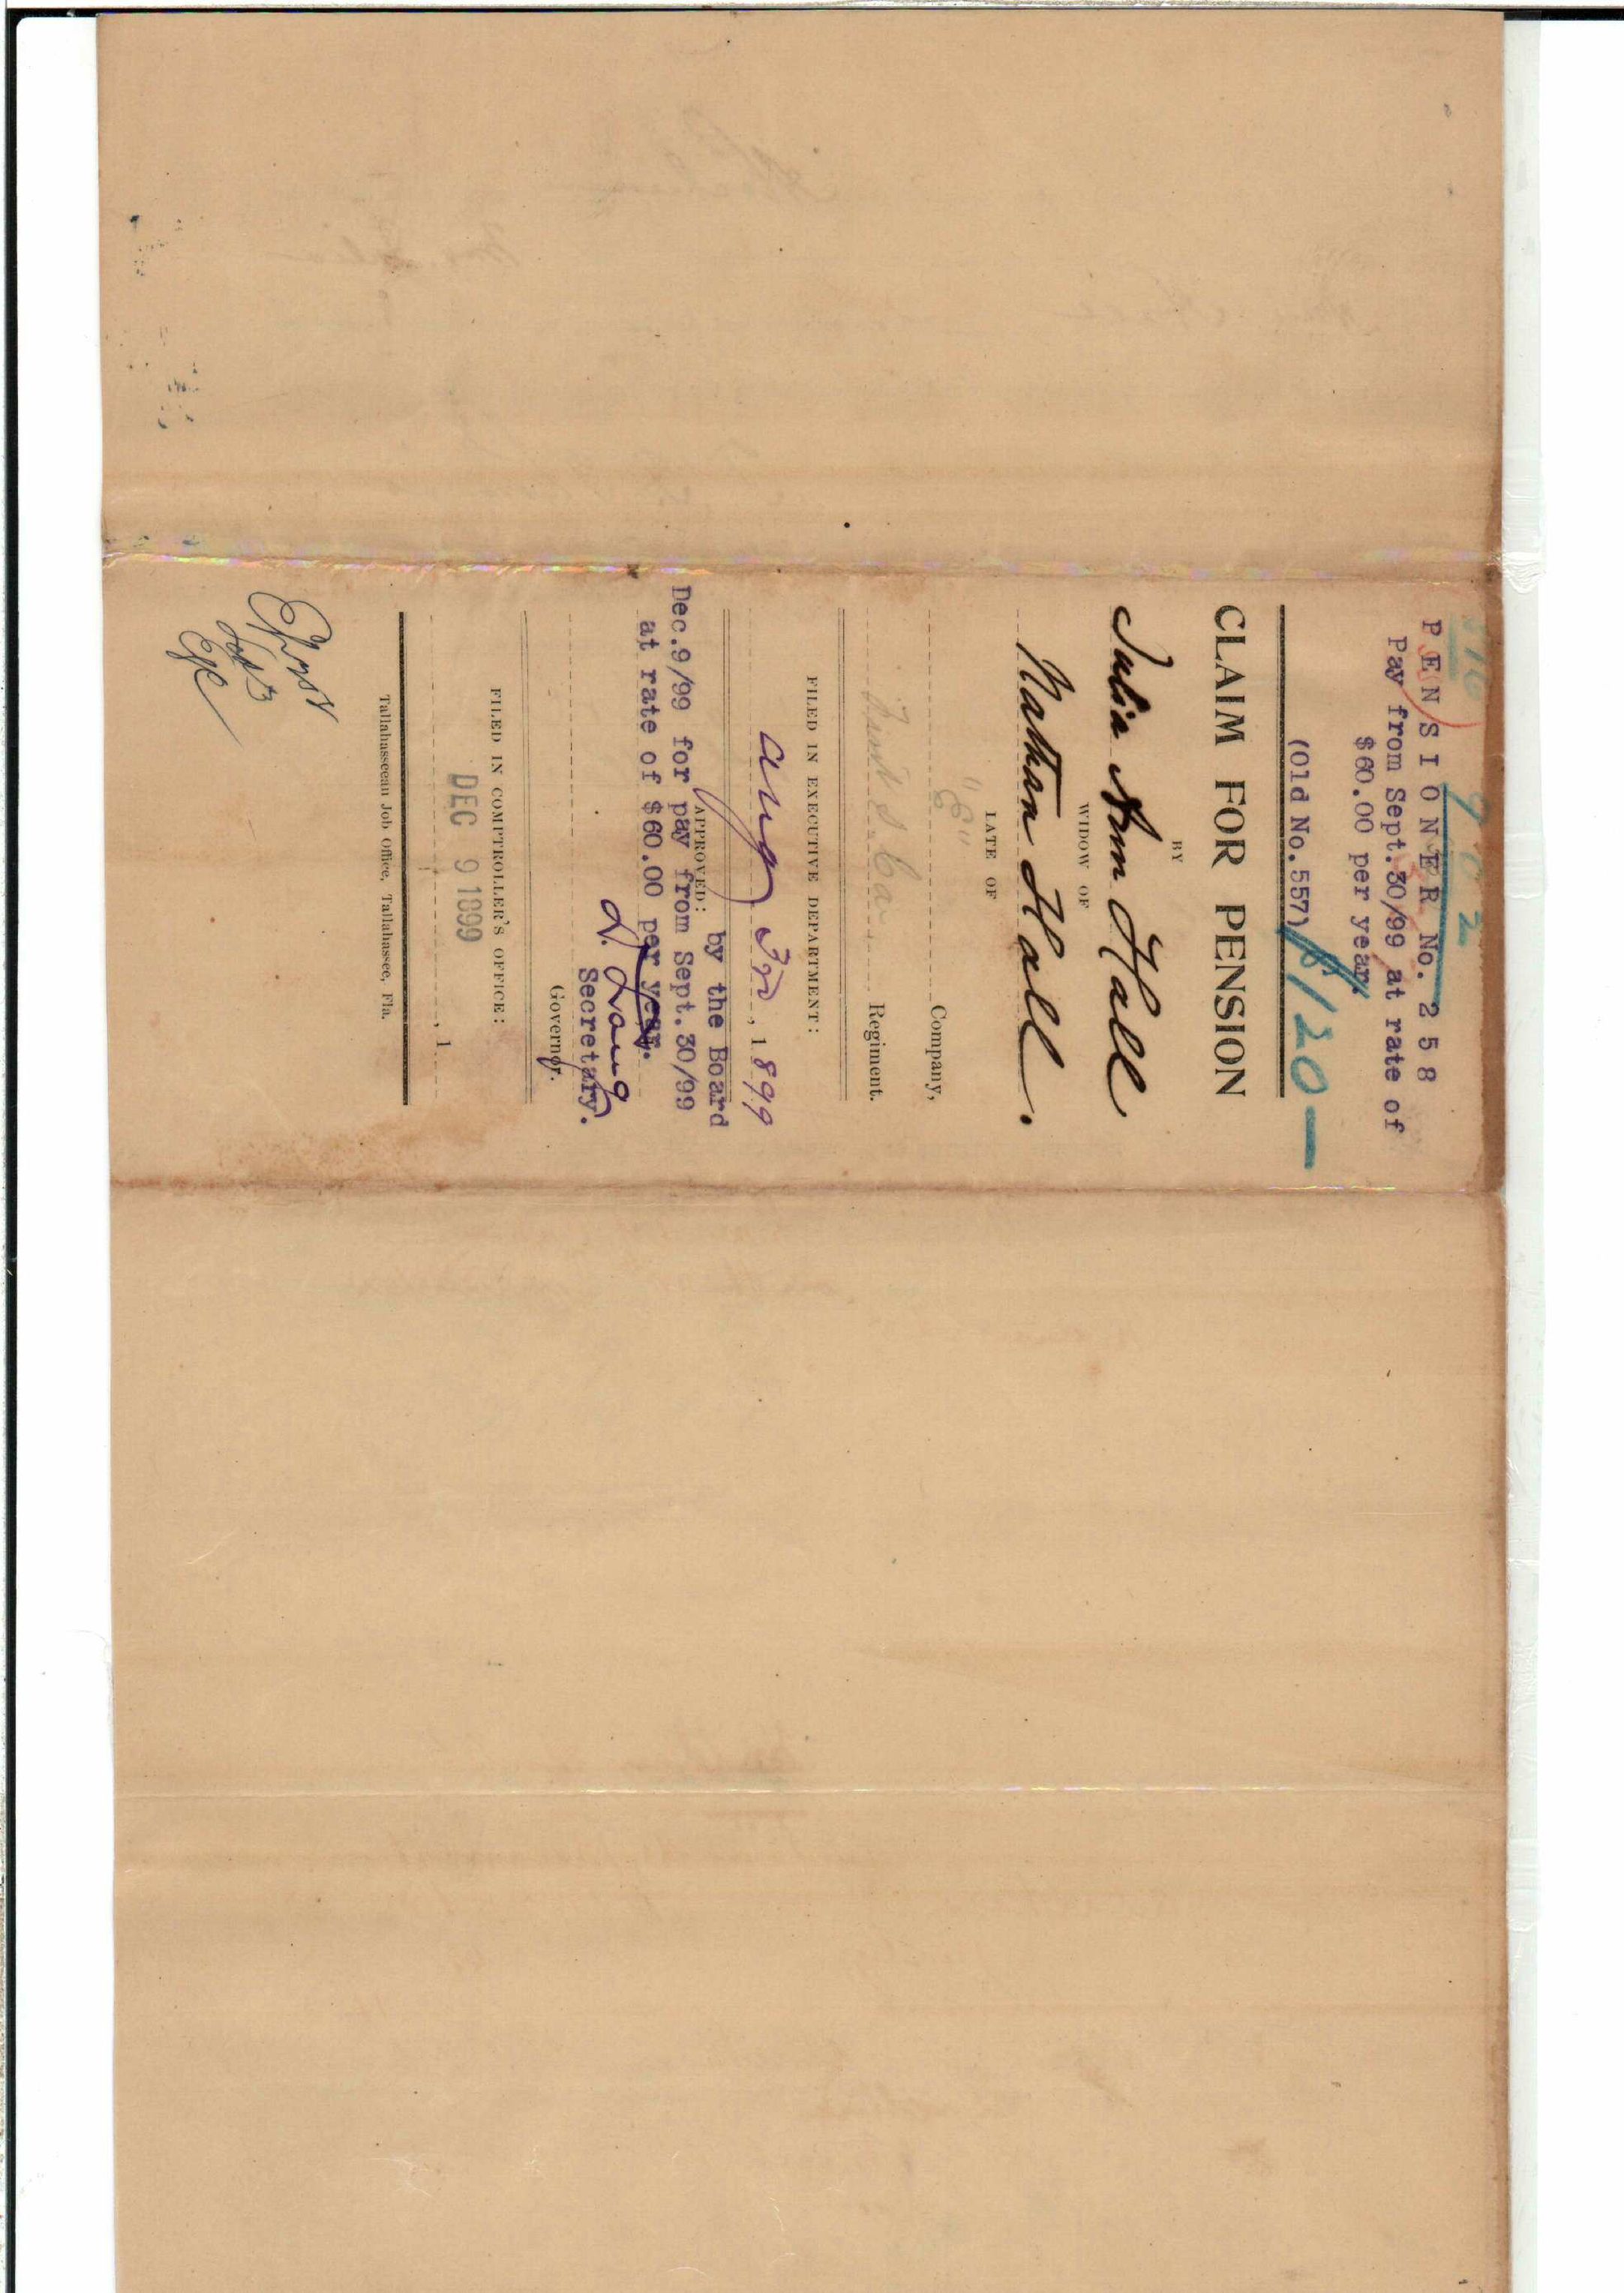 9602
P E N S I O N E R No. 2 5 8
Pay from Sept.30/99 at rate of
$60.00 per year.
(Old No.557)
$120—
CLAIM FOR PENSION
BY
Julia Ann Hall
WIDOW OF
Nathan Hall.
LATE OF
"E" Company,
Regiment.
FILED IN EXECUTIVE DEPARTMENT:
Aug 3rd, 1899
APPROVED: by the Board
Dec.9/99 for pay from Sept.30/99
at rate of $60.00 per year.
Secretary.
Governor.
FILED IN COMPTROLLER'S OFFICE:
DEC 9 1899
, 1
Tallahasseean Job Office, Tallahassee, Fla.